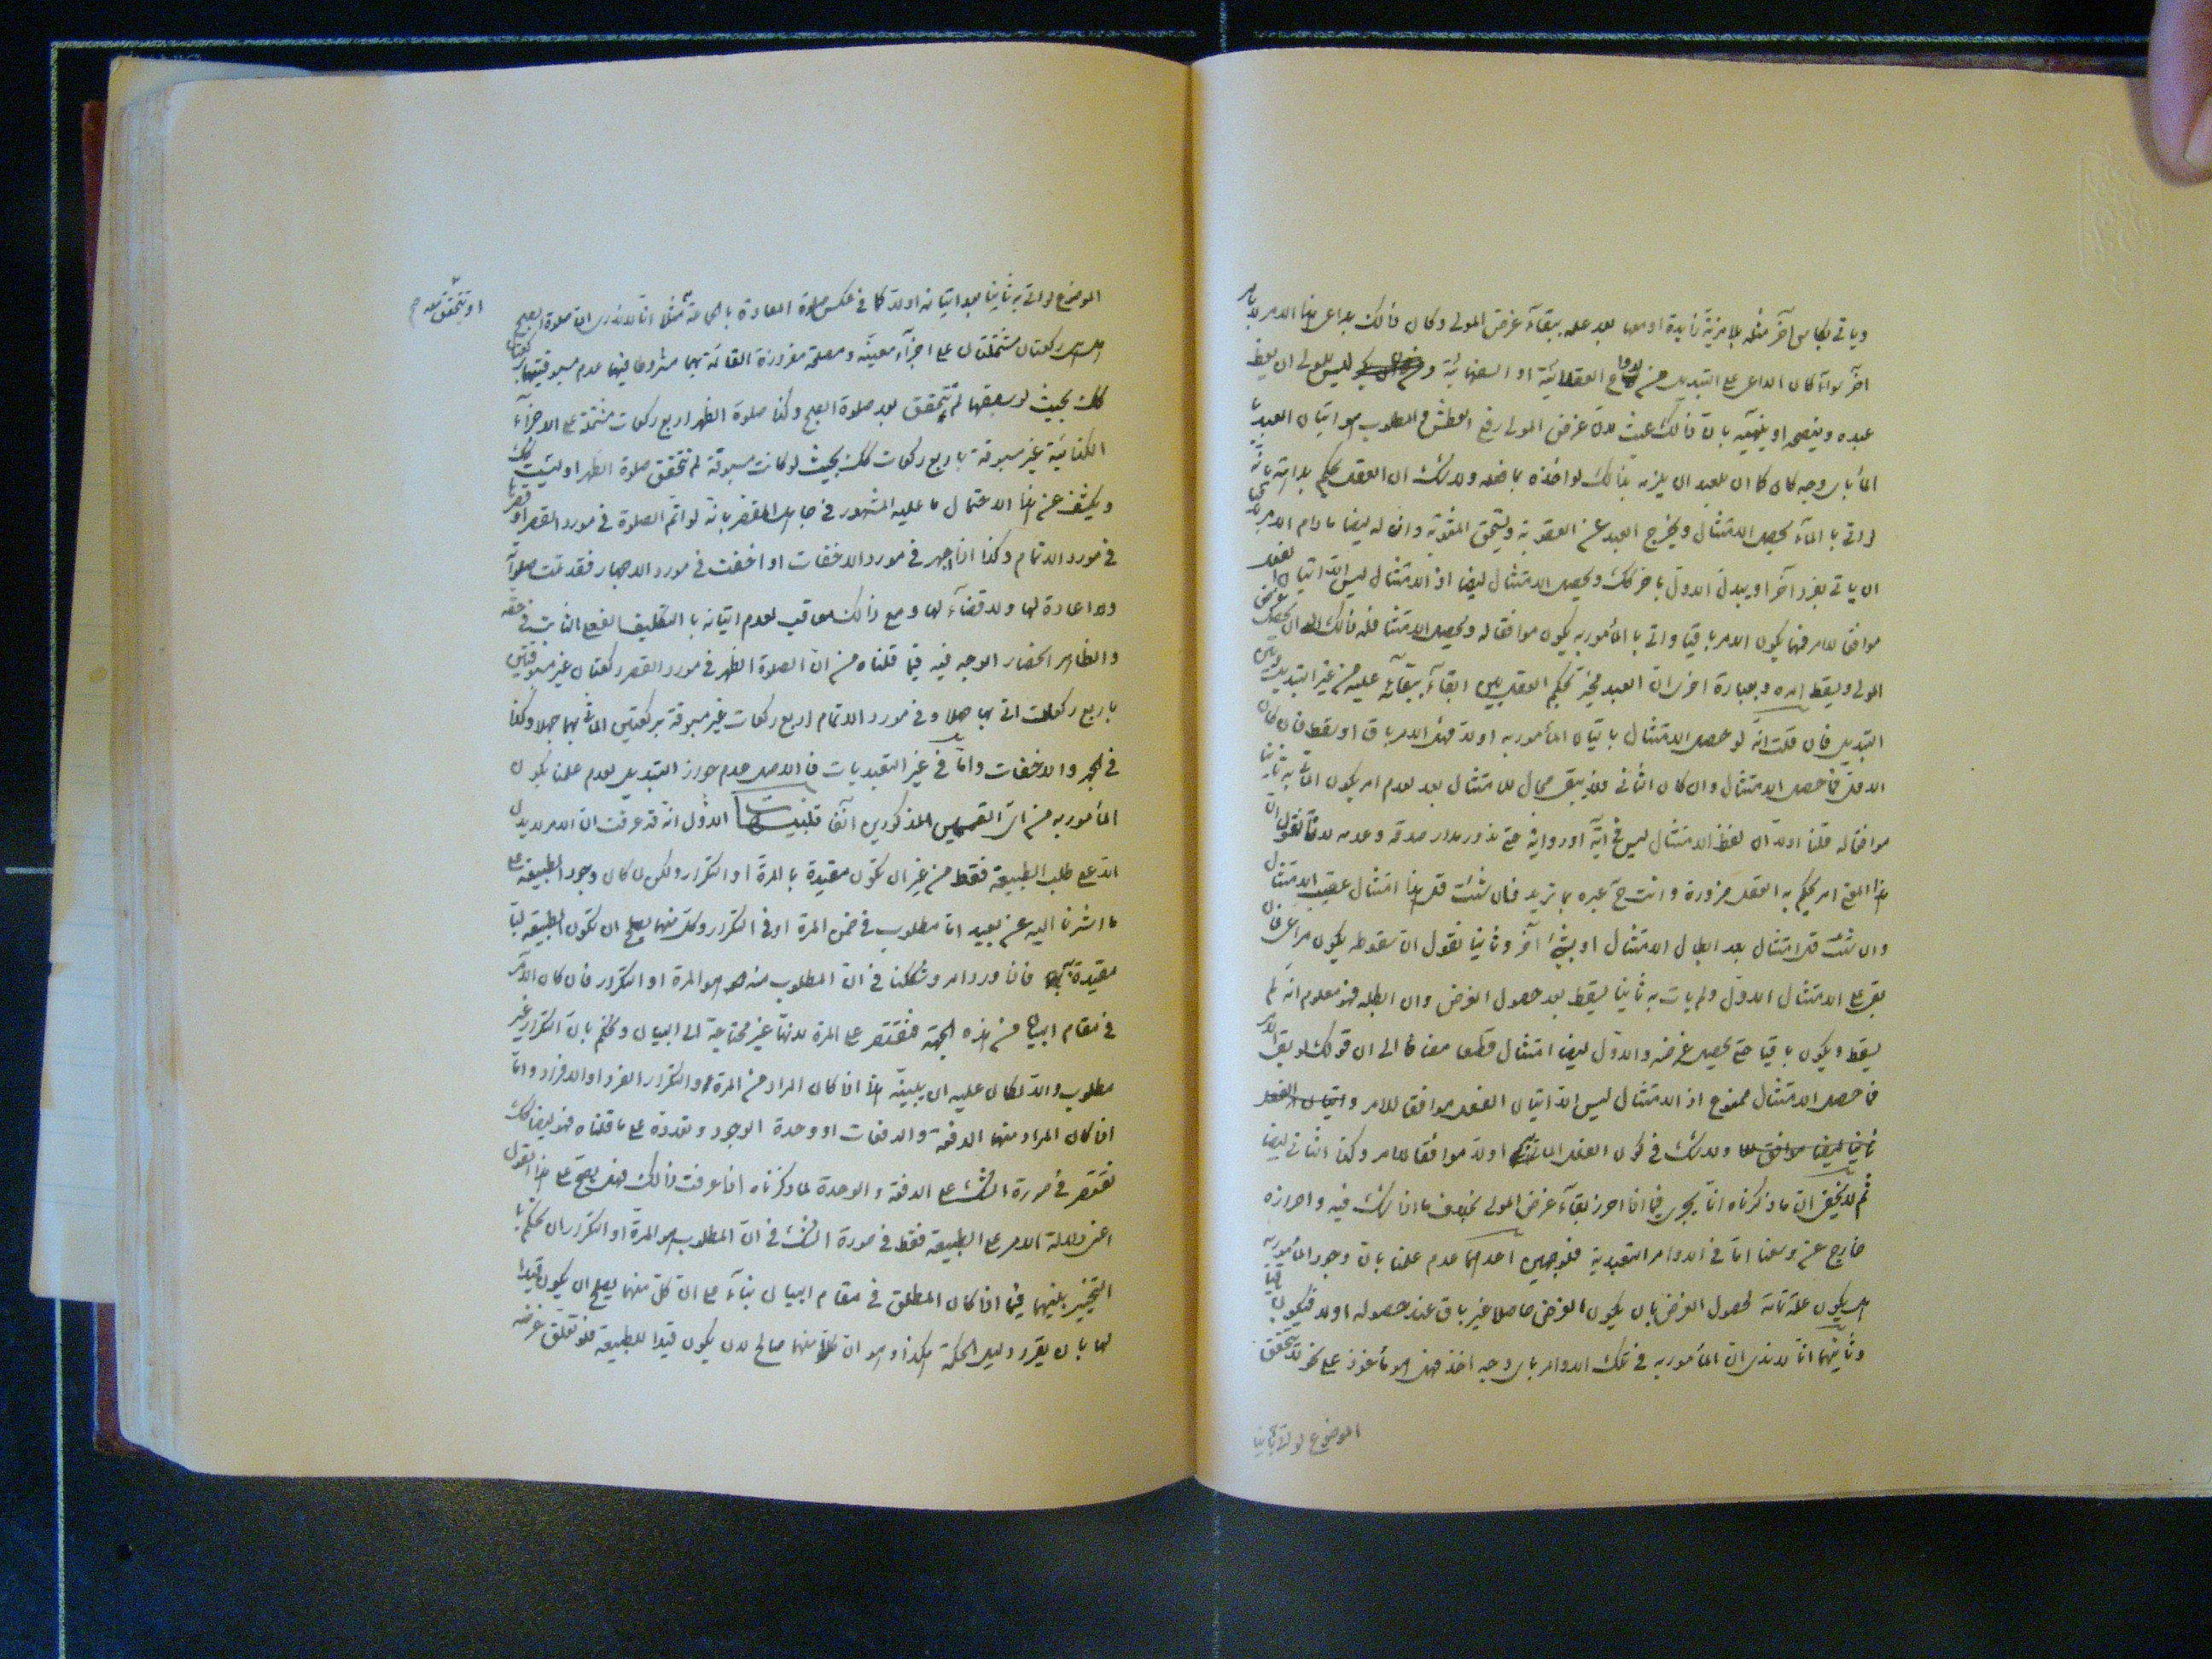 وياتى بكاس آخر مثله بلا مزية زايدة او معها بعد علمه ببقاء غرض المولى وكان ذالك بداعى هذا الامر لا بامر
آخر سواء كان الداعى على التبديل من الدواعى العقلائية او السفهائية و ليس للمولى ان يعظ
عبده وينصحه او ينهيه بان ذالك عبث لان غرض المولى رفع العطش والمطلوب هو اتيان العبد
الماء باى وجه كان كان للعبد ان يلزمه بذالك لو اخذه بما فعله ولا شك ان العقل يحكم بداهة بانه
لو اتى بالماء يحصل الامتثال ويخرج العبد عن العقوبة ويستحق المثوبة وان له ايضا ما دام الامر
ان ياتى بفرد آخر او يبدل الاول باخر كك ويحصل الامتثال ايضا اذ الامتثال ليس الا اتيان الفعل
موافقا للامر فمهما يكون الامر باقيا واتى بالمأمور به يكون موافقا له ويحصل الامتثال فله ذالك الى ان يحصل غرض
المولى ويسقط امره وبعبارة اخرى ان العبد مخير بحكم العقل بين ابقاء بقائه عليه من غير التبديل وبين
التبديل فان قلت انه لو حصل الامتثال باتيان المأمور به اولا فهل الامر باق او يسقط فان كان
الاول فما حصل الامتثال وان كان الثانى فلا يبقى مجال للامتثال بعد لعدم امر يكون المأتى به ثانيا
موافقا له قلنا اولا ان لفظ الامتثال ليس فى آية او رواية حتى ندور مدار صدقه وعدمه لانا نقول ان
هذا المعنى امر يحكم به العقل ضرورة وانت ح عبره بما تريد فان شئت قل هذا امتثال عقيب الامتثال
وان شئت قل امتثال بعد ابطال الامتثال او بشئ آخر وثانيا نقول ان سقوطه يكون مراعى فان
بقى على الامتثال الاول ولم يات به ثانيا يسقط بعد حصول الغرض وان ابطله فهو معلوم انه لم
يسقط ويكون باقيا حتى يحصل غرضه والاول ايضا امتثال قطعا مضافا الى ان قولك لو بقى الامر
فما حصل الامتثال ممنوع اذ الامتثال ليس الا اتيان الفعل موافقا للامر واتيان الفعل
ثانيا ايضا موافق له ولا شك فى كون الفعل المأتى به اولا موافقا للامر وكذا الثانى ايضا
ثم لا يخفى ان ما ذكرناه انما يجرى فيما اذا احرز بقاء غرض المولى بخلاف ما اذا شك فيه واحرازه
خارج عن وسعنا اما فى الاوامر التعبدية فلوجهين احدهما عدم علمنا بان وجود المأمور به
هل يكون علة تامة لحصول الغرض بان يكون الغرض حاصلا غير باق عند حصوله اولا فيكون باقيا
وثانيهما انا لا ندرى ان المأمور به فى تلك الاوامر باى وجه اخذ فهل هو مأخوذ على نحو لا يتحقق
الموضوع لو اتى به ثانيا
الموضوع لو اتى به ثانيا بعد اتيانه اولا كما فى عكس صلوة المعادة بالجماعة مثلا انا لا ندرى ان صلوة الصبح
هل هى ركعتان مشتملتان على اجزاء معينة ومصلحة مفروزة القائمة بهما مشروطا فيهما عدم مسبوقيتهما بركعتان
كك بحيث لو سبقهما لم يتحقق بعد صلوة الصبح وكذا صلوة الظهر اربع ركعات مشتملة على الاجزاء
او يتحقق بعده صح
الكذائية غير مسبوقة باربع ركعات كك بحيث لو كانت مسبوقة لم تتحقق صلوة الظهر او ليست كك
ويكشف عن هذا الاحتمال ما عليه المشهور فى جاهل المقصر بانه لو اتم الصلوة فى مورد القصر او قصرها
فى مورد الاتمام وكذا اذا اجهر فى مورد الاخفات او اخفت فى مورد الاجهار فقد تمت صلوته
ولا اعادة لها ولا قضاء لها ومع ذالك يعاقب لعدم اتيانه بالتكليف الفعلى الثابت فى حقه
والظاهر انحصار الوجه فيه فيما قلناه من ان الصلوة الظهر فى مورد القصر ركعتان غير مسبوقتين
باربع ركعات اتى بها جهلا وفى مورد الاتمام اربع ركعات غير مسبوقة بركعتين المأتى بهما جهلا وكذا
فى الجهر والاخفات واما فى غير التعبديات فالاصل عدم جواز التبديل لعدم علمنا بكون
المأمور به من اى القسمين المذكورين آنفا تنبيهات الاول انه قد عرفت ان الامر لا يدل
الا على طلب الطبيعة فقط من غير ان تكون مقيدة بالمرة او التكرار ولكن لما كان وجود الطبيعة على
ما اشرنا اليه عن بعيد اما مطلوب فى ضمن المرة او فى التكرار وكل منهما يصلح ان تكون الطبيعة لبا
مقيدة به فاذا ورد امر وشككنا فى ان المطلوب منه هو المرة او التكرار فان كان الامر
فى مقام البيان من هذه الجهة فنقتصر على المرة لانها غير محتاجة الى البيان ونحكم بان التكرار غير
مطلوب والا لكان عليه ان يبينه هذا اذا كان المراد من المرة والتكرار الفرد او الافراد واما
اذا كان المراد منهما الدفعة والدفعات او وحدة الوجود وتعدده على ما قلناه فهو ايضا كك
نقتصر فى صورة الشك على الدفعة والوحدة لما ذكرناه اذا عرفت ذالك فهل يصح على هذا القول
اعنى دلالة الامر على الطبيعة فقط فى صورة الشك فى ان المطلوب هو المرة او التكرار ان نحكم با
التخيير بينهما فيما اذا كان المطلق فى مقام البيان بناء على ان كل منهما يصلح ان يكون قيدا
لها بان يقرر دليل الحكمة هكذا وهو ان كلا منهما صالح لان يكون قيدا للطبيعة فلو تعلق غرضه